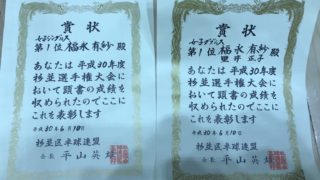 賞状
女子シングルス
第1位 福永 有紗 殿
あなたは平成30年度
杉並選手権大会に
おいて頭書の成績を
収められたのでここに
これを表彰します
平成30年6月10日
杉並区卓球連盟
会長 平山英雄
賞状
女子ダブルス
第1位 福永 有紗 殿
里井 正子
あなたは平成30年度
杉並選手権大会に
おいて頭書の成績を
収められたのでここに
これを表彰します
平成30年6月10日
杉並区卓球連盟
会長 平山英雄